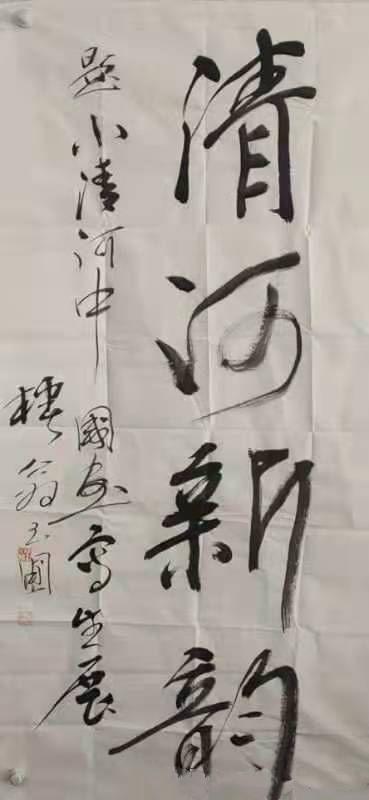 清河新韵
题小清河中国画写生展
翁玉国